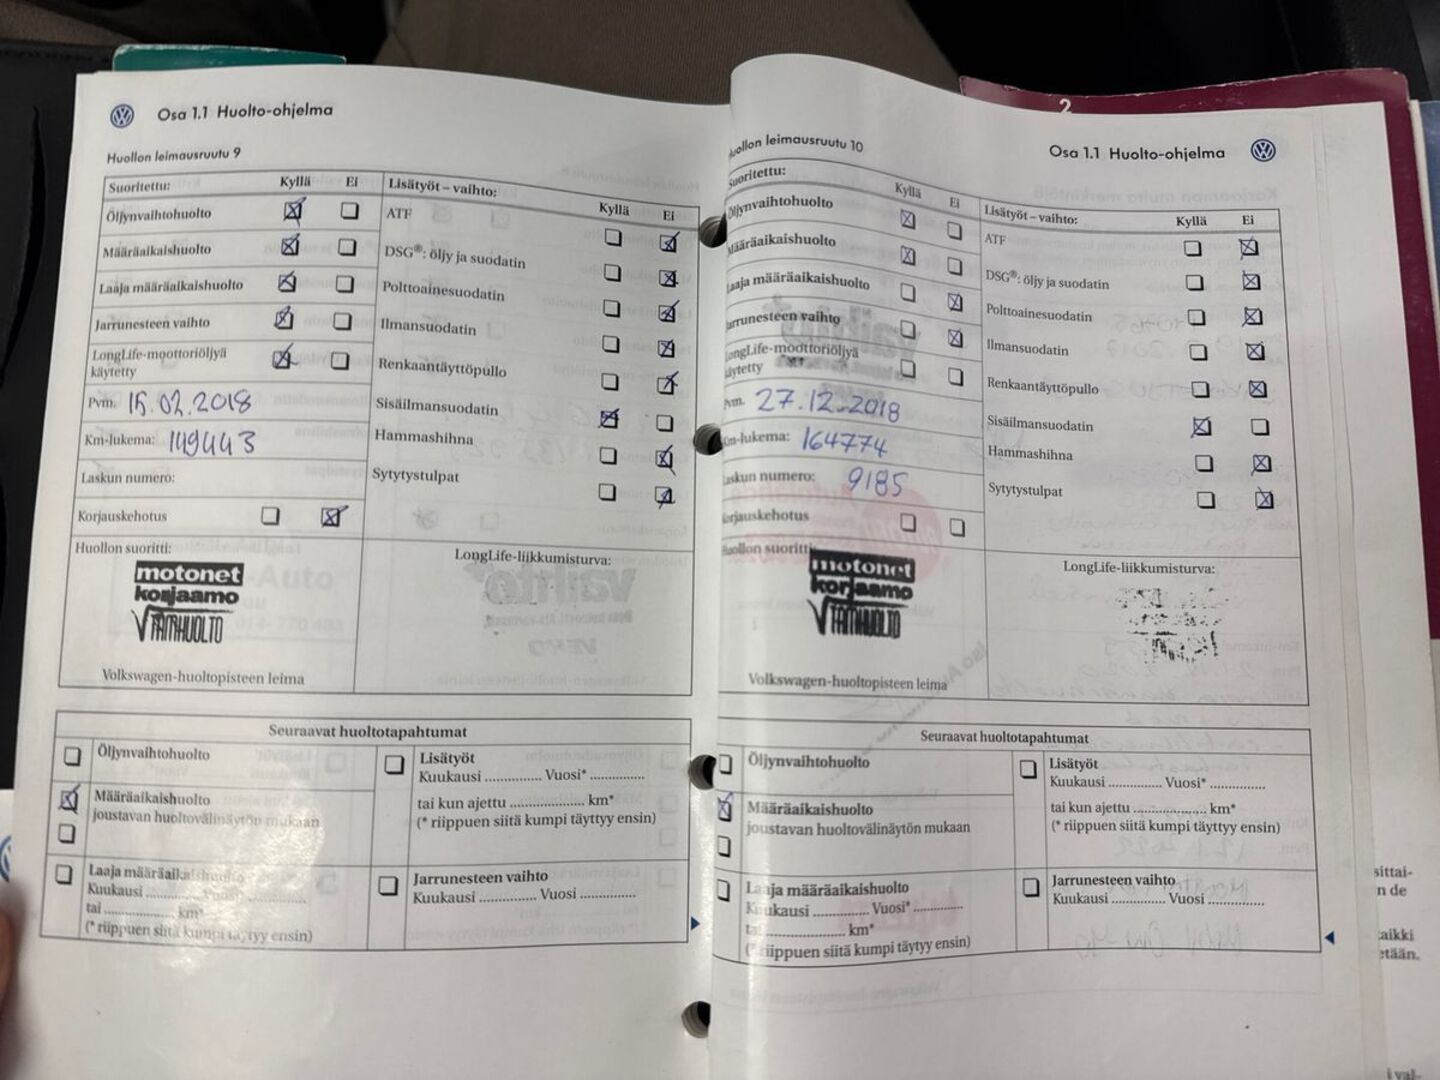 2
Osa 1.1 Huolto-ohjelma
Huollon leimausruutu 9
Suoritettu: Kyllä Ei
Öljynvaihtohuolto
Määräaikaishuolto
Laaja määräaikaishuolto
Jarrunesteen vaihto
LongLife-moottoriöljyä
käytetty
Pvm. 15.02.2018
Km-lukema: 149443
Laskun numero:
Korjauskehotus
Huollon suoritti:
motonet
korjaamo
TÄMÄHUOLTO
Volkswagen-huoltopisteen leima
Lisätyöt – vaihto: Kyllä Ei
ATF
DSG®: öljy ja suodatin
Polttoainesuodatin
Ilmansuodatin
Renkaantäyttöpullo
Sisäilmansuodatin
Hammashihna
Sytytystulpat
LongLife-liikkumisturva:
Seuraavat huoltotapahtumat
Öljynvaihtohuolto
Määräaikaishuolto
joustavan huoltovälinäytön mukaan
Laaja määräaikaishuolto
Kuukausi .............. Vuosi* ..............
tai .................. km*
(* riippuen siitä kumpi täytyy ensin)
Lisätyöt
Kuukausi .............. Vuosi* ..............
tai kun ajettu .................. km*
(* riippuen siitä kumpi täyttyy ensin)
Jarrunesteen vaihto
Kuukausi .............. Vuosi ..............
Osa 1.1 Huolto-ohjelma
Huollon leimausruutu 10
Suoritettu: Kyllä Ei
Öljynvaihtohuolto
Määräaikaishuolto
Laaja määräaikaishuolto
Jarrunesteen vaihto
LongLife-moottoriöljyä
käytetty
Pvm. 27.12.2018
Km-lukema: 164774
Laskun numero: 9185
Korjauskehotus
Huollon suoritti
motonet
korjaamo
TÄMÄHUOLTO
Volkswagen-huoltopisteen leima
Lisätyöt – vaihto: Kyllä Ei
ATF
DSG®: öljy ja suodatin
Polttoainesuodatin
Ilmansuodatin
Renkaantäyttöpullo
Sisäilmansuodatin
Hammashihna
Sytytystulpat
LongLife-liikkumisturva:
Seuraavat huoltotapahtumat
Öljynvaihtohuolto
Määräaikaishuolto
joustavan huoltovälinäytön mukaan
Laaja määräaikaishuolto
Kuukausi .............. Vuosi* ..............
tai .................. km*
(* riippuen siitä kumpi täytyy ensin)
Lisätyöt
Kuukausi .............. Vuosi* ..............
tai kun ajettu .................. km*
(* riippuen siitä kumpi täyttyy ensin)
Jarrunesteen vaihto
Kuukausi .............. Vuosi ..............